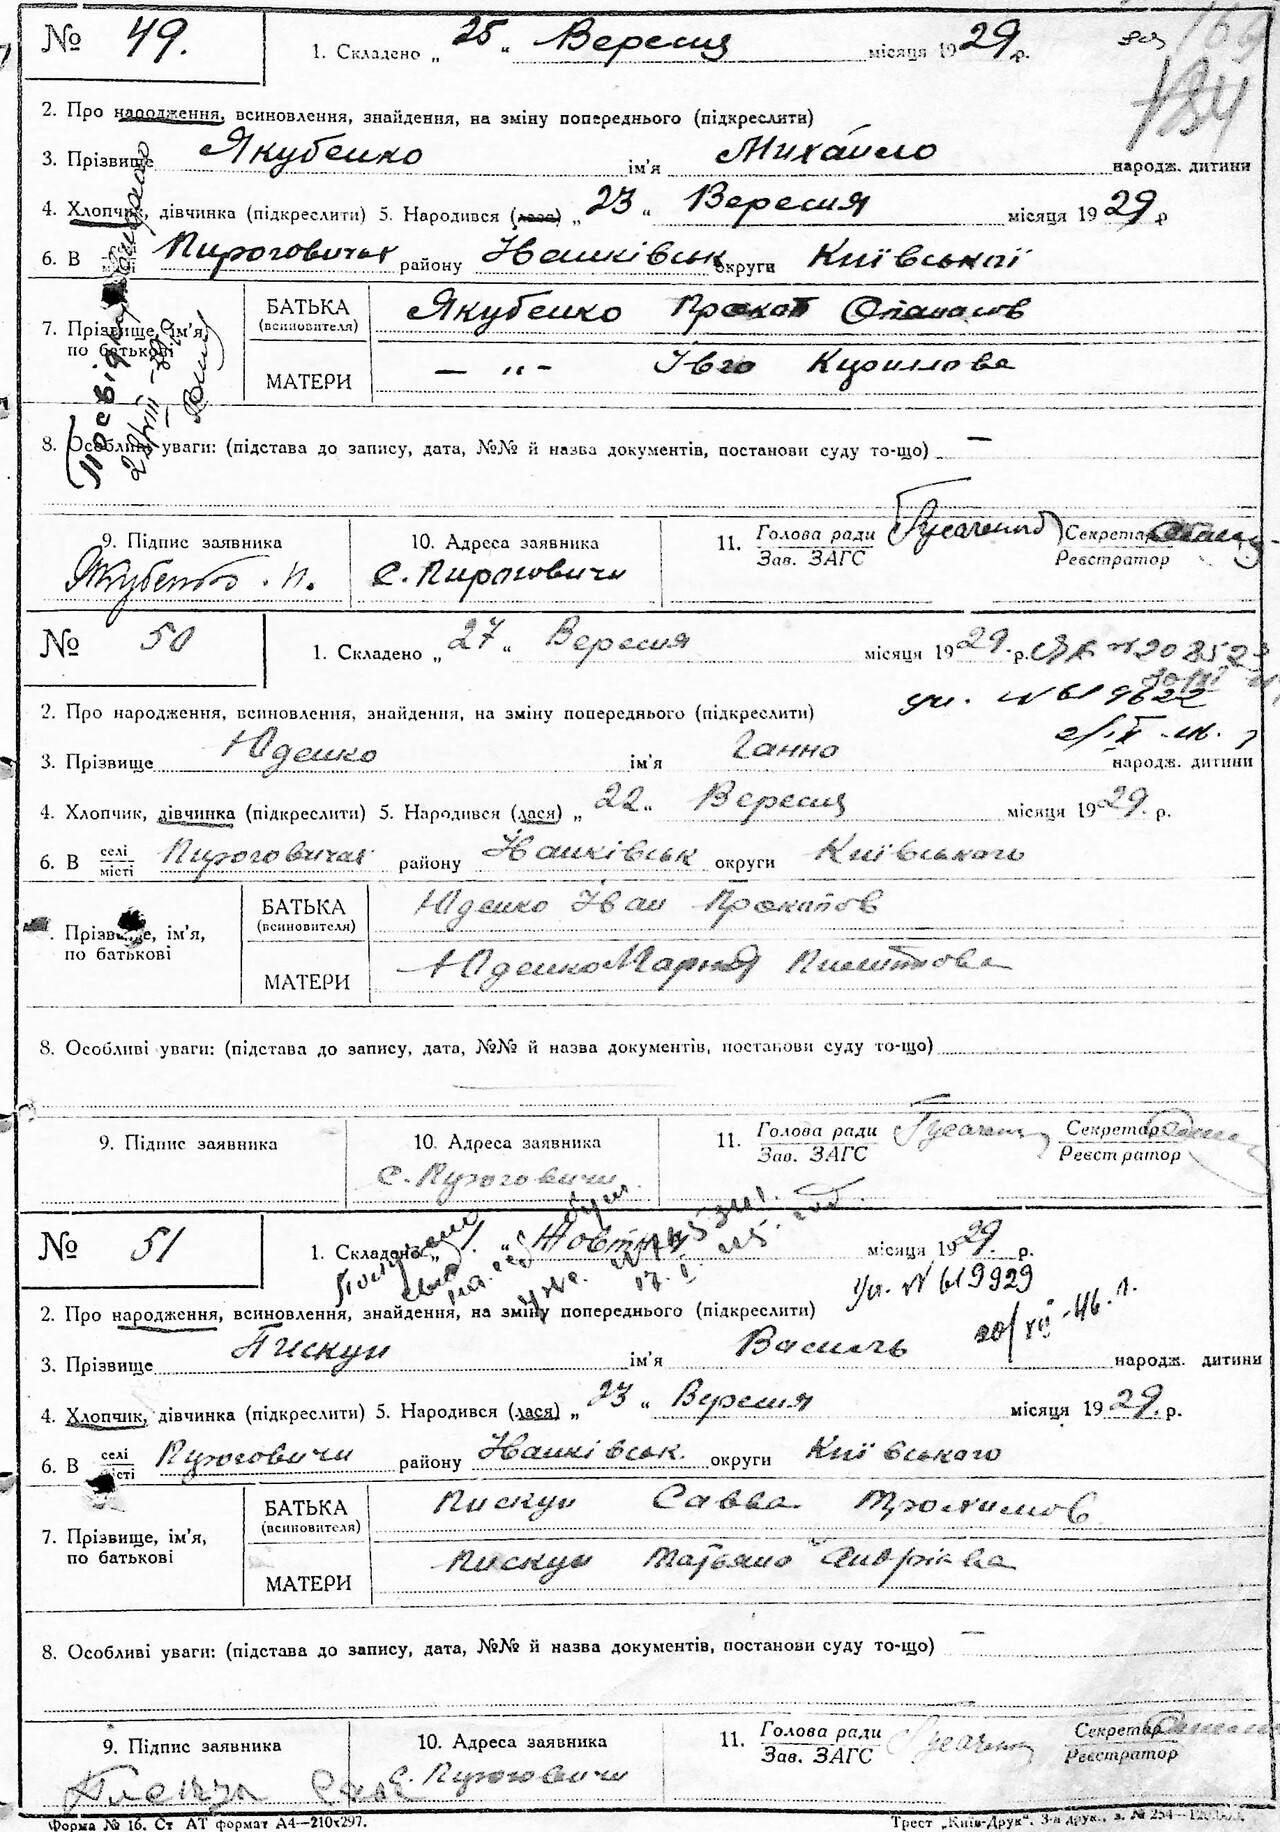 № 49.
1. Складено „ 25 „ Вересня місяця 1929 р.
184
2. Про народження, всиновлення, знайдення, на зміну попереднього (підкреслити)
3. Прізвище Якубенко ім'я Михайло народж. дитини
4. Хлопчик, дівчинка (підкреслити) 5. Народився (лася) „ 23 „ Вересня місяця 1929 р
6. В Пироговичах району Іванківськ округи Київської
7. Прізвище, ім'я, по батькові
БАТЬКА (всиновителя) Якубенко Прокоп Опанасов
МАТЕРИ — „ —
8. Особливі уваги: (підстава до запису, дата, №№ й назва документів, постанови суду то-що) —
9. Підпис заявника
Якубенко . П.
10. Адреса заявника
с. Пироговичи
11. Голова ради
Зав. ЗАГС
Секретар
Реєстратор
№ 50
1. Складено „ 27 „ Вересня місяця 1929 р.
2. Про народження, всиновлення, знайдення, на зміну попереднього (підкреслити)
3. Прізвище Юденко ім'я Ганно народж. дитини
4. Хлопчик, дівчинка (підкреслити) 5. Народився (лася) „ 22 „ Вересня місяця 1929. р.
6. В селі місті Пироговичах району Іванківськ округи Київського
Прізвище, ім'я, по батькові
БАТЬКА (всиновителя) Юденко Іван Прокопов
МАТЕРИ Юденко Мария
8. Особливі уваги: (підстава до запису, дата, №№ й назва документів, постанови суду то-що)
9. Підпис заявника
10. Адреса заявника
с. Пироговичи
11. Голова ради
Зав. ЗАГС
Секретар
Реєстратор
№ 51
1. Складено „ 1 „ Жовтня місяця 1929. р.
№ 619929
20/XII-46. г.
2. Про народження, всиновлення, знайдення, на зміну попереднього (підкреслити)
3. Прізвище Пискун ім'я Василь народж. дитини
4. Хлопчик, дівчинка (підкреслити) 5. Народився (лася) „ 23 „ Вересня місяця 1929. р.
6. В селі місті Пироговичи району Іванківськ. округи Київського
7. Прізвище, ім'я, по батькові
БАТЬКА (всиновителя) Пискун Савва Трохимов
МАТЕРИ Пискун Татьяно Андріева
8. Особливі уваги: (підстава до запису, дата, №№ й назва документів, постанови суду то-що) —
9. Підпис заявника
10. Адреса заявника
с. Пироговичи
11. Голова ради
Зав. ЗАГС
Секретар
Реєстратор
Форма № 16. Ст АТ формат А4—210х297.
Трест „Київ-Друк". 3-я друк., з. № 254